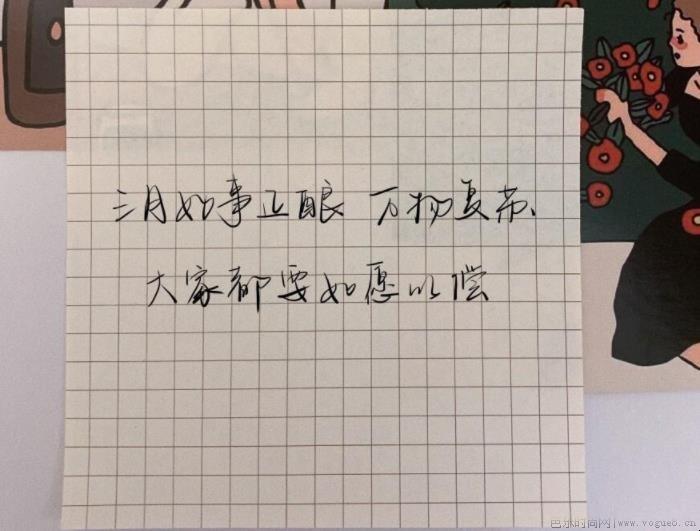 三月如事正酿 万物复苏
大家都要如愿以偿
巴乐时尚网|www.vogueo.cn